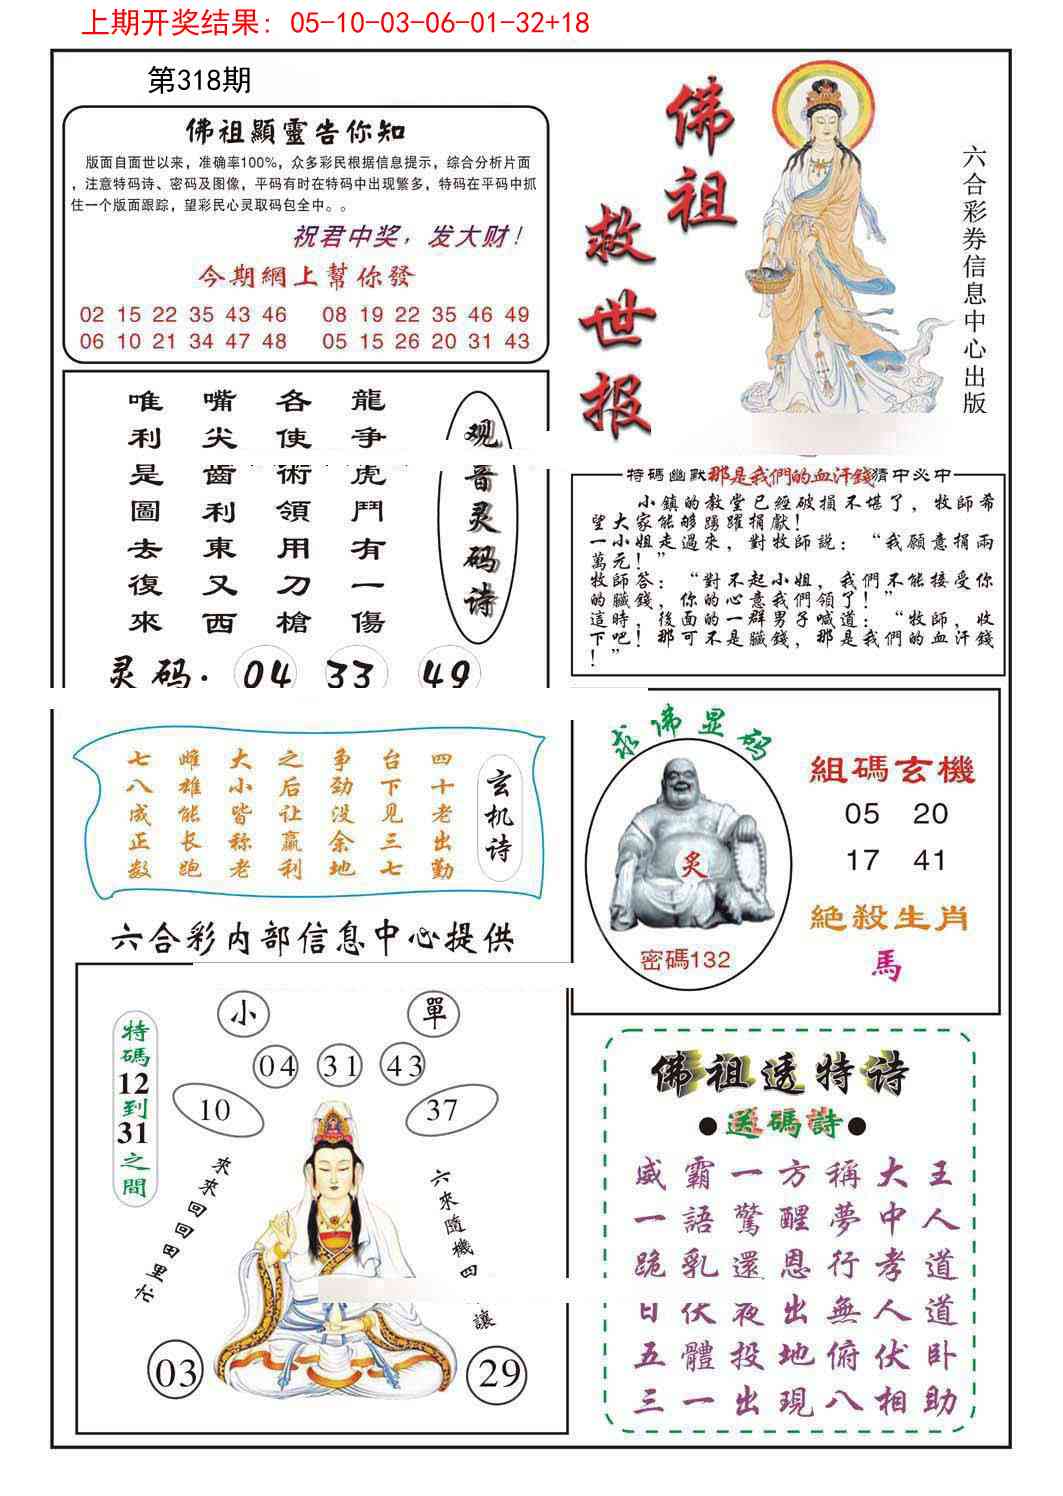 上期开奖结果: 05-10-03-06-01-32+18
第318期
佛祖顯靈告你知
版面自面世以来，准确率100%，众多彩民根据信息提示，综合分析片面
，注意特码诗、密码及图像，平码有时在特码中出现繁多，特码在平码中抓
住一个版面跟踪，望彩民心灵取码包全中。。
祝君中奖，发大财！
今期網上幫你發
02 15 22 35 43 46 08 19 22 35 46 49
06 10 21 34 47 48 05 15 26 20 31 43
佛祖
救世报
六合彩券信息中心出版
观音灵码诗
龍争虎鬥有一傷
各使術領用刀槍
嘴尖齒利東又西
唯利是圖去復來
灵码. 04 33 49
特碼幽默那是我們的血汗錢猜中必中
小鎮的教堂已經破損不堪了，牧師希
望大家能够踴躍捐獻！
一小姐走過來，對牧師説：“我願意捐兩
萬元！”
牧師答：“對不起小姐，我們不能接受你
的臟錢，你的心意我們領了！”
這時，後面的一群男子喊道：“牧師，收
下吧！那可不是臟錢，那是我們的血汗錢
！”
玄机诗
四十老出勤
台下见三七
争劲没余地
之后让赢利
大小皆称老
雌雄能长跑
七八成正数
求佛显码
炙
密碼132
組碼玄機
05 20
17 41
絕殺生肖
馬
六合彩内部信息中心提供
特碼12到31之間
小 單
04 31 43
10 37
來來回回田里忙
六來隨機四
讓
03 29
佛祖透特诗
●送碼詩●
威霸一方稱大王
一語驚醒夢中人
跪乳還恩行孝道
日伏夜出無人道
五體投地俯伏卧
三一出現八相助